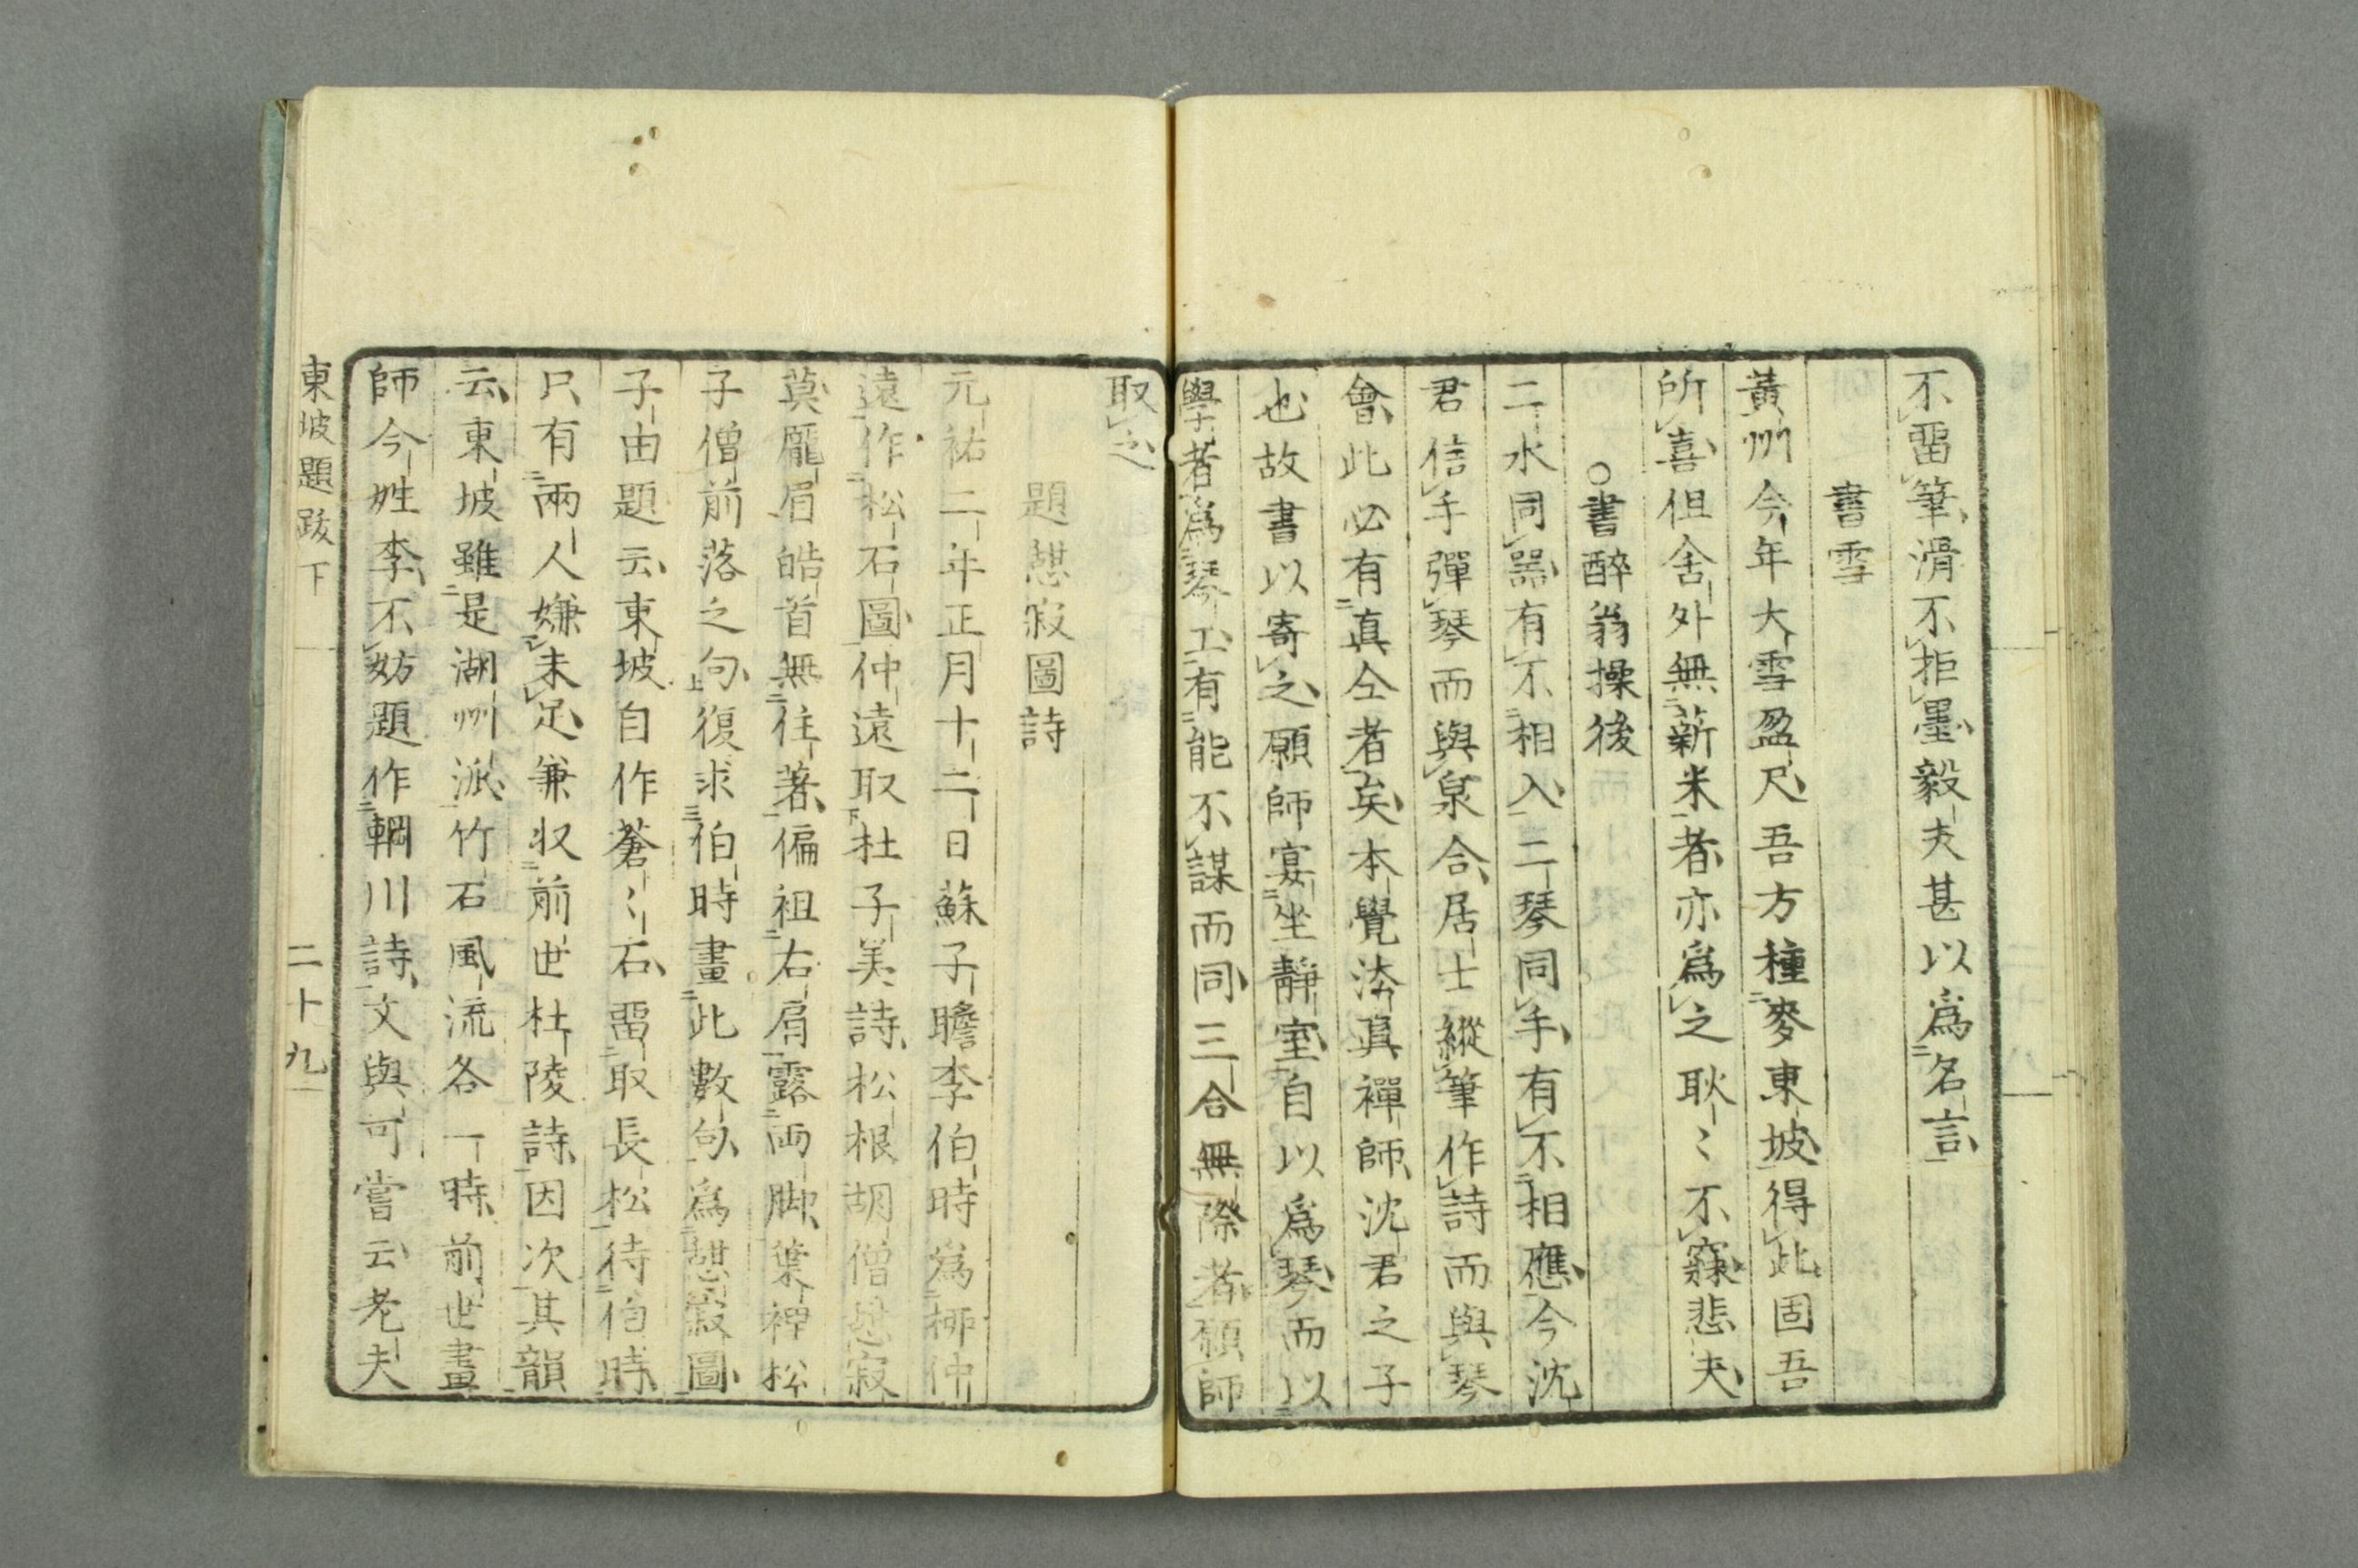 不畱筆滑不拒墨毅夫甚以爲名言
書雪
黃州今年大雪盈尺吾方種麥東坡得此固吾
所喜但舍外無薪米者亦爲之耿〻不寐悲夫
○書醉翁操後
二水同器有不相入二琴同手有不相應今沈
君信手彈琴而與泉合居士縱筆作詩而與琴
會此必有真仝者矣本覺法眞禪師沈君之子
也故書以寄之願師宴坐靜室自以爲琴而以
學者爲琴工有能不謀而同三合無際者願師
取之
題憇寂圖詩
元祐二年正月十二日蘇子瞻李伯時爲柳仲
遠作松石圖仲遠取杜子美詩松根胡僧憇寂
莫龐眉皓首無住著偏袒右肩露両脚葉裡松
子僧前落之句復求伯時畫此數句爲憇寂圖
子由題云東坡自作蒼〻石畱取長松待伯時
只有兩人嫌未足兼收前世杜陵詩因次其韻
云東坡雖是湖州派竹石風流各一時前世畫
師今姓李不妨題作輞川詩文與可嘗云老夫
東坡題跋下 二十九